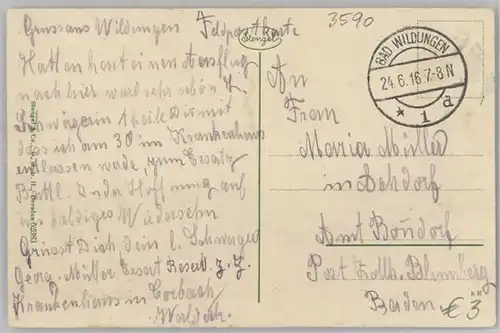 Gruss aus Wildungen Feldpostkarte
Hatten heut einen Ausflug
nach hier war sehr schön
Schwägerin teile Dir mit
dass ich am 30 im Krankenhaus
entlassen werde, zum Ersatz
Batl. In der Hoffnung auf
ein baldiges Wiedersehn
Grüsst Dich dein l. Schwager
Georg Müller Ersatz Reserv. z. Z.
Krankenhaus in Corbach
Waldeck.
Stengel
3590
BAD WILDUNGEN
24.6.16.7-8N
* 1 a
An
Frau
Maria Müller
in
Amt Bonndorf
Post Zollh. Blumberg
Baden
€3